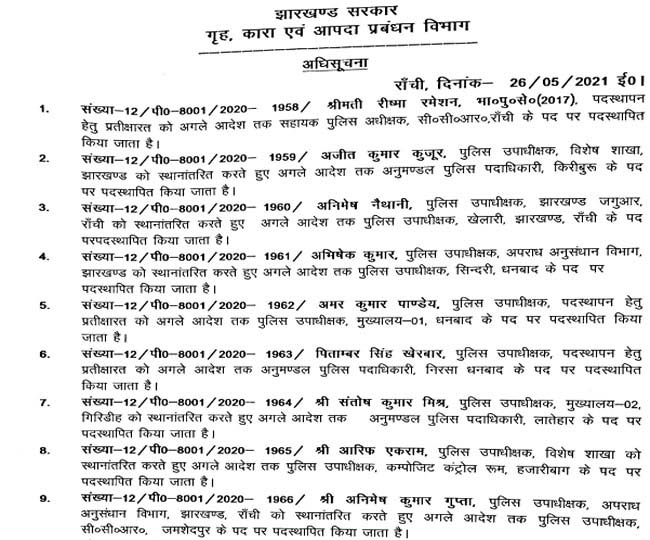 झारखण्ड सरकार
गृह, कारा एवं आपदा प्रबंधन विभाग
अधिसूचना
राँची, दिनांक– 26/05/2021 ई०।
1. संख्या–12/पी0–8001/2020– 1958/ श्रीमती रीष्मा रमेशन, भा०पु०से०(2017), पदस्थापन
हेतु प्रतीक्षारत को अगले आदेश तक सहायक पुलिस अधीक्षक, सी०सी०आर०,राँची के पद पर पदस्थापित
किया जाता है।
2. संख्या–12/पी0–8001/2020– 1959/ अजीत कुमार कुजूर, पुलिस उपाधीक्षक, विशेष शाखा,
झारखण्ड को स्थानांतरित करते हुए अगले आदेश तक अनुमण्डल पुलिस पदाधिकारी, किरीबुरू के पद
पर पदस्थापित किया जाता है।
3. संख्या–12/पी0–8001/2020– 1960/ अनिमेष नैथानी, पुलिस उपाधीक्षक, झारखण्ड जगुआर,
राँची को स्थानांतरित करते हुए अगले आदेश तक पुलिस उपाधीक्षक, खेलारी, झारखण्ड, राँची के पद
परपदस्थापित किया जाता है।
4. संख्या–12/पी0–8001/2020– 1961/ अभिषेक कुमार, पुलिस उपाधीक्षक, अपराध अनुसंधान विभाग,
झारखण्ड को स्थानांतरित करते हुए अगले आदेश तक पुलिस उपाधीक्षक, सिन्दरी, धनबाद के पद पर
पदस्थापित किया जाता है।
5. संख्या–12/पी0–8001/2020– 1962/ अमर कुमार पाण्डेय, पुलिस उपाधीक्षक, पदस्थापन हेतु
प्रतीक्षारत को अगले आदेश तक पुलिस उपाधीक्षक, मुख्यालय–01, धनबाद के पद पर पदस्थापित किया
जाता है।
6. संख्या–12/पी0–8001/2020– 1963/ पिताम्बर सिंह खेरबार, पुलिस उपाधीक्षक, पदस्थापन हेतु
प्रतीक्षारत को अगले आदेश तक अनुमण्डल पुलिस पदाधिकारी, निरसा धनबाद के पद पर पदस्थापित
किया जाता है।
7. संख्या–12/पी0–8001/2020– 1964/ श्री संतोष कुमार मिश्र, पुलिस उपाधीक्षक, मुख्यालय–02,
गिरिडीह को स्थानांतरित करते हुए अगले आदेश तक अनुमण्डल पुलिस पदाधिकारी, लातेहार के पद पर
पदस्थापित किया जाता है।
8. संख्या–12/पी0–8001/2020– 1965/ श्री आरिफ एकराम, पुलिस उपाधीक्षक, विशेष शाखा को
स्थानांतरित करते हुए अगले आदेश तक पुलिस उपाधीक्षक, कम्पोजिट कंट्रोल रूम, हजारीबाग के पद पर
पदस्थापित किया जाता है।
9. संख्या–12/पी0–8001/2020– 1966/ श्री अनिमेष कुमार गुप्ता, पुलिस उपाधीक्षक, अपराध
अनुसंधान विभाग, झारखण्ड, राँची को स्थानांतरित करते हुए अगले आदेश तक पुलिस उपाधीक्षक,
सी०सी०आर०, जमशेदपुर के पद पर पदस्थापित किया जाता है।